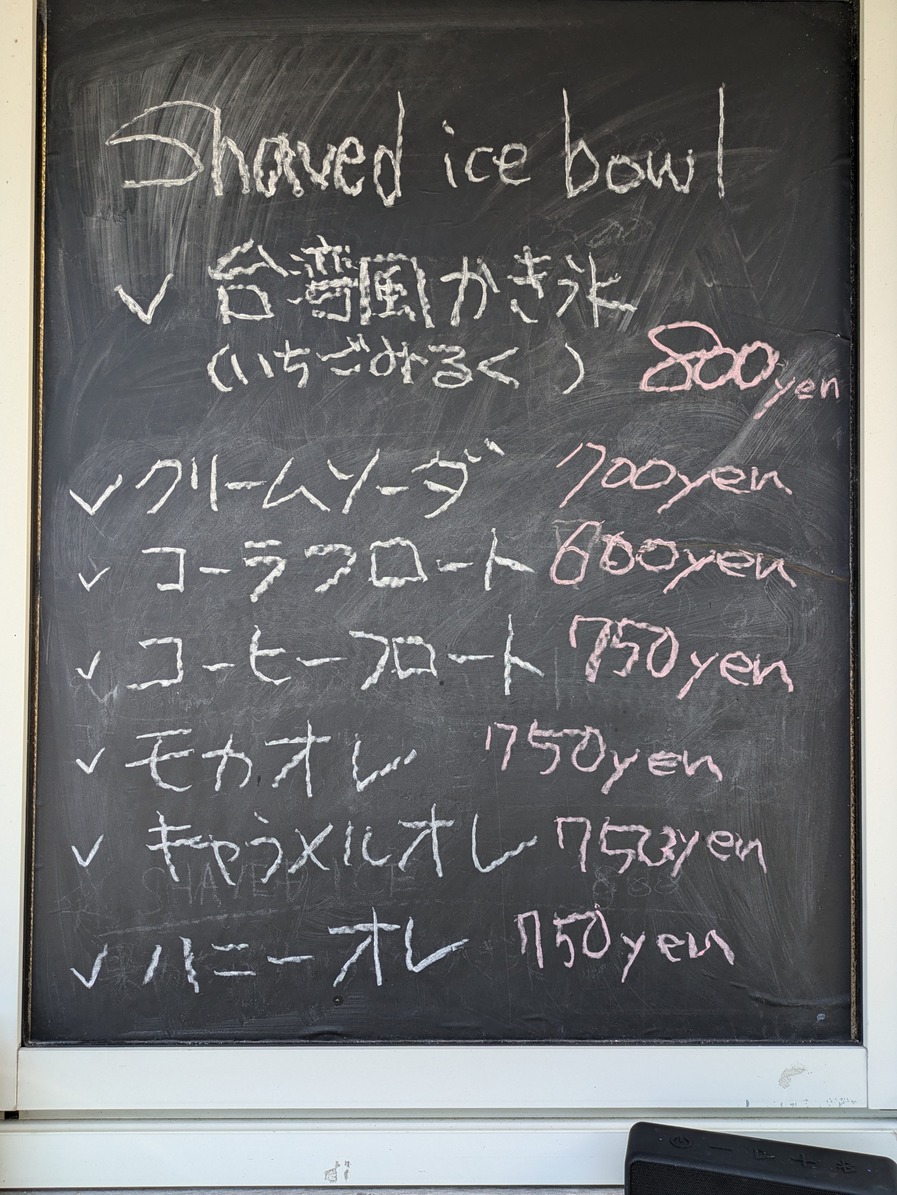 Shaved ice bowl
✓ 台湾風かき氷
(いちごみるく ) 800yen
✓ クリームソーダ 700yen
✓ コーラフロート 600yen
✓ コーヒーフロート 750yen
✓ モカオレ 750yen
✓ キャラメルオレ 750yen
✓ ハニーオレ 750yen